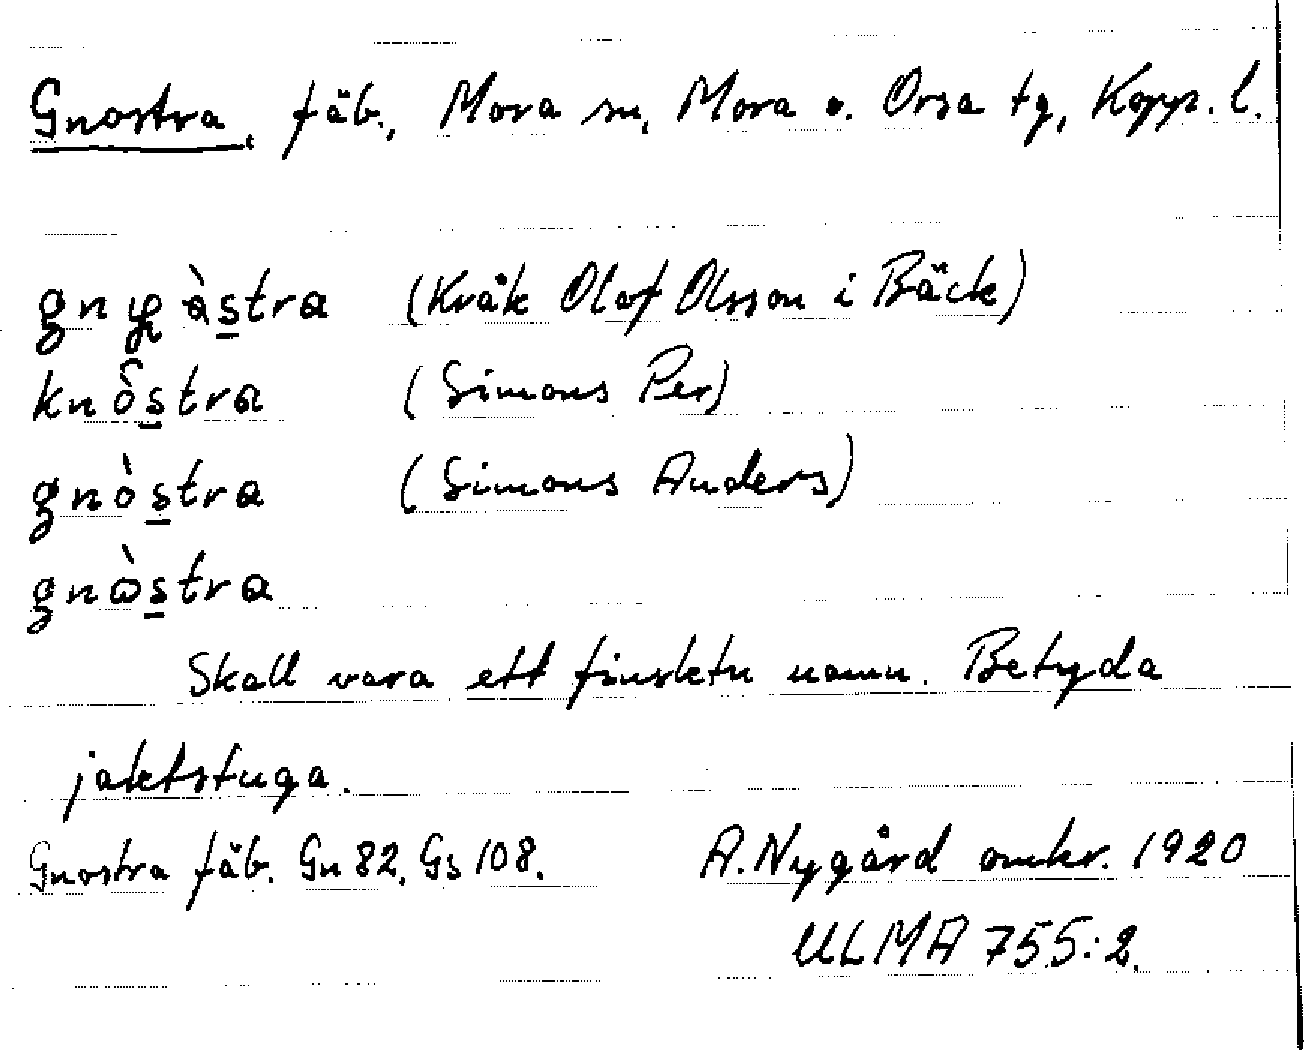 Gnostra, fäb., Mora sn, Mora o. Orsa tg, Kopp. l.
(Kråk Olof Olsson i Bäck)
knòstra (Simons Per)
gnòstra (Simons Anders)
gnòstra
Skall vara ett finsktn namn. Betyda
jaktstuga.
Gnostra fäb. Gn 82, Gs 108. A. Nygård omkr. 1920
ULMA 755:2.